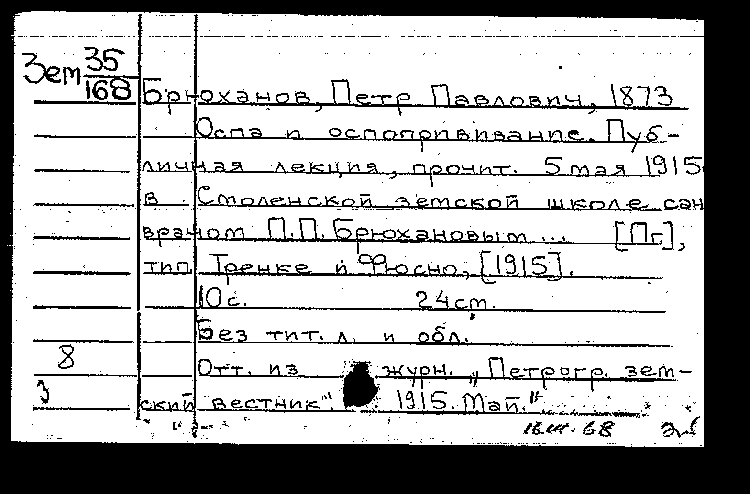 Зем 35/168
Брюханов, Петр Павлович, 1873
Оспа и оспопрививание. Пуб-
личная лекция, прочит. 5 мая 1915
в Смоленской земской школе сан
врачом П.П. Брюхановым... [Пг],
тип. Тренке и Фюсно, [1915].
10с. 24см.
Без тит. л. и обл.
8
Отт. из журн. „Петрогр. зем-
ский вестник". 1915. Май."
68